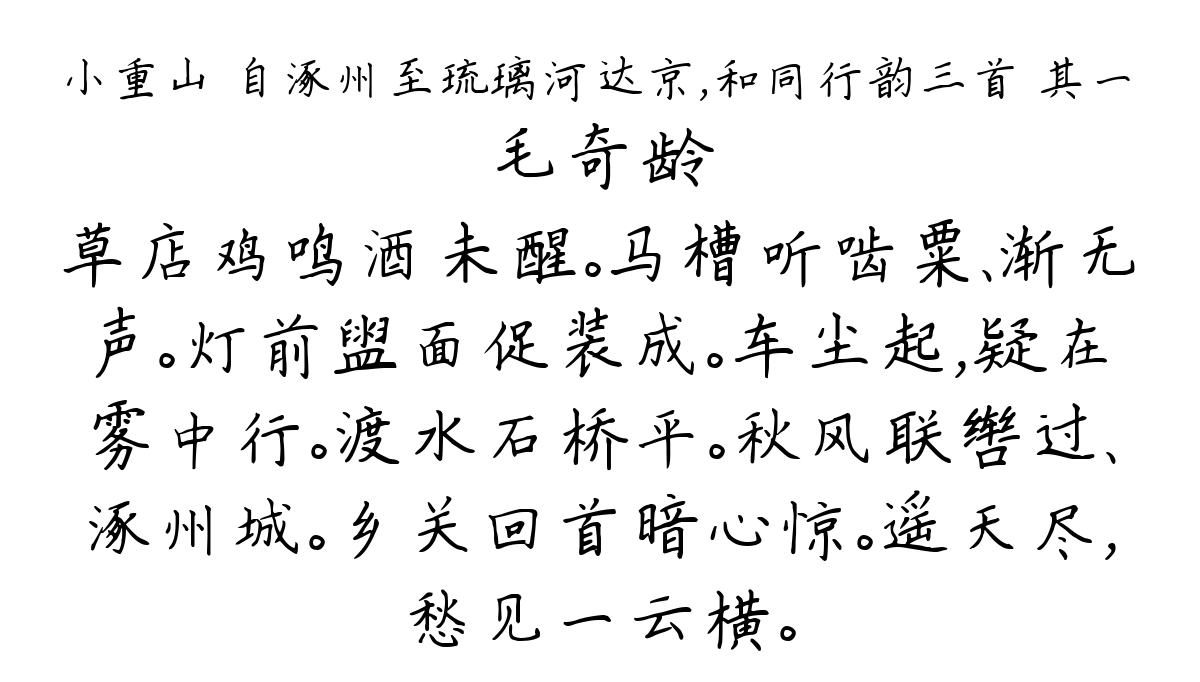 小重山 自涿州至琉璃河达京,和同行韵三首 其一
毛奇龄
草店鸡鸣酒未醒。马槽听啮粟、渐无
声。灯前盥面促装成。车尘起,疑在
雾中行。渡水石桥平。秋风联辔过、
涿州城。乡关回首暗心惊。遥天尽,
愁见一云横。